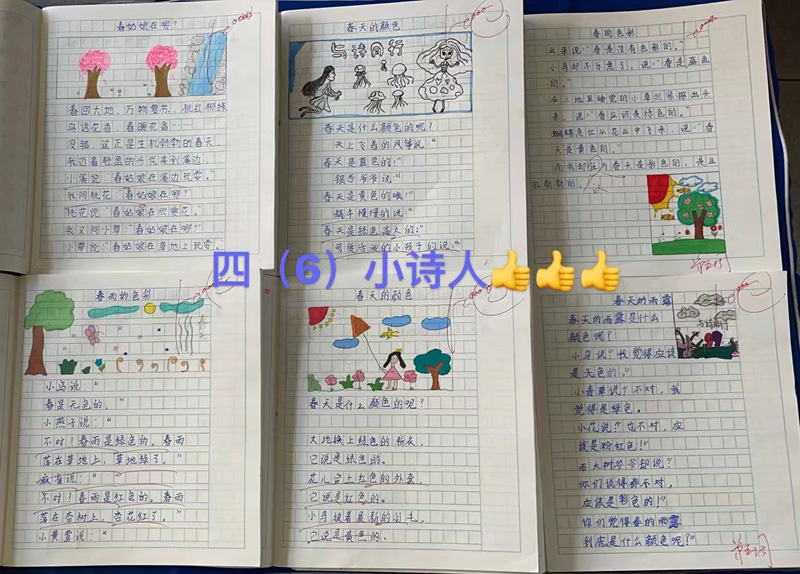 春姑娘在哪?
春回大地、万物复苏、桃红柳绿
鸟语花香、春暖花香……
没错,这正是生机勃勃的春天,
我迈着轻盈的步伐来到溪边
小溪说:“春姑娘在溪边玩耍。”
我问桃花:“春姑娘在哪?”
桃花说:“春姑娘在欣赏花。”
我又问小草:“春姑娘在哪?”
小草说:“春姑娘在草地上玩耍。”
春天的颜色
与诗同行
春天是什么颜色的呢?
天上飞着的风筝说,
春天是蓝色的:”
银杏爷爷说:“
春天是黄色的哦!”
蜗牛慢慢的说:“
春天是绿色
可爱活泼的小孩子们说:“
春的色彩
云朵说:“春是没有色彩的。”
小鸟却不乐意了,说:“春是蓝色
的。”
在土地里睡觉的小草
来,说:“春应该是绿色的。”
蝴蝶急忙从花丛中飞来,说:“春
天是黄色的。”
而我却
四(6)小诗人👍👍👍
春雨的色彩
春天
小鸟说:“
春是无色的。”
小燕子说:“
不对!春雨是绿色的。春雨
落在草地上,草地绿了。”
麻雀说:“
不对!春雨是红色的。春雨
落在杏树上,杏花红了。”
小黄莺说:“
春天的颜色
春天是什么颜色的呢?
大地换上绿色的新衣,
它说是绿色的。
花儿穿上红色的外套,
它说是红色的。
小鸟披着最新的羽毛,
它说是黄色的。
春天的雨露
与诗同行
春天的雨露是什么
颜色呢?
小鸟说?我觉得应该
是无色的,”
小青草说?不对,我
觉得是绿色。
小花说?也不对,应
该是粉红色!”
而大树爷爷却说?
你们说得都不对,
应该是彩色的!”
你们觉得春的雨露
到底是什么颜色呢?”